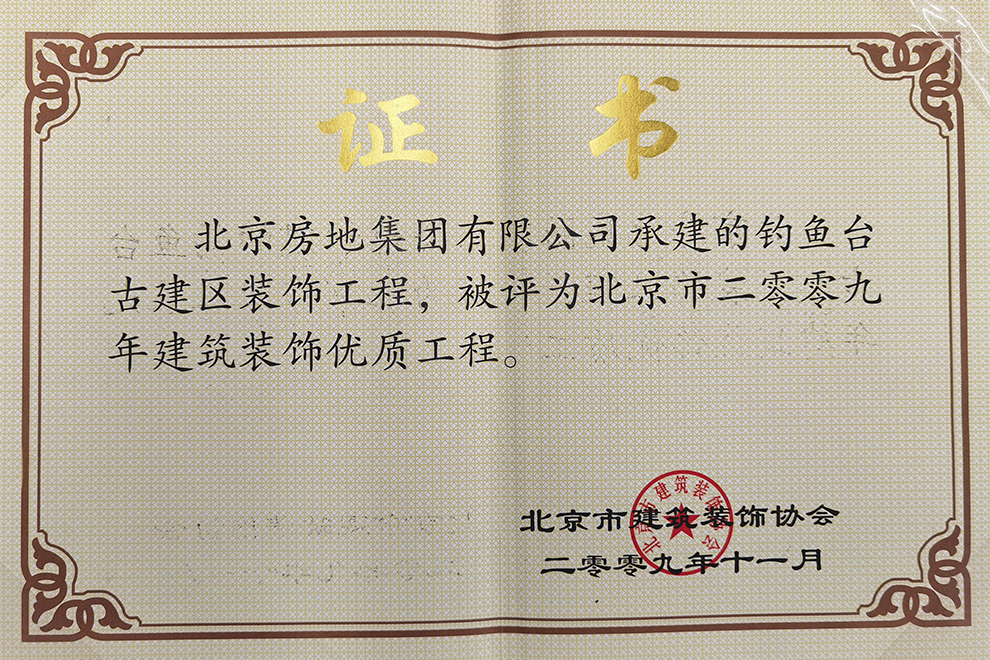 证书
北京房地集团有限公司承建的钓鱼台
古建区装饰工程，被评为北京市二零零九
年建筑装饰优质工程。
北京市建筑装饰协会
北京市建筑装饰协会
二零零九年十一月